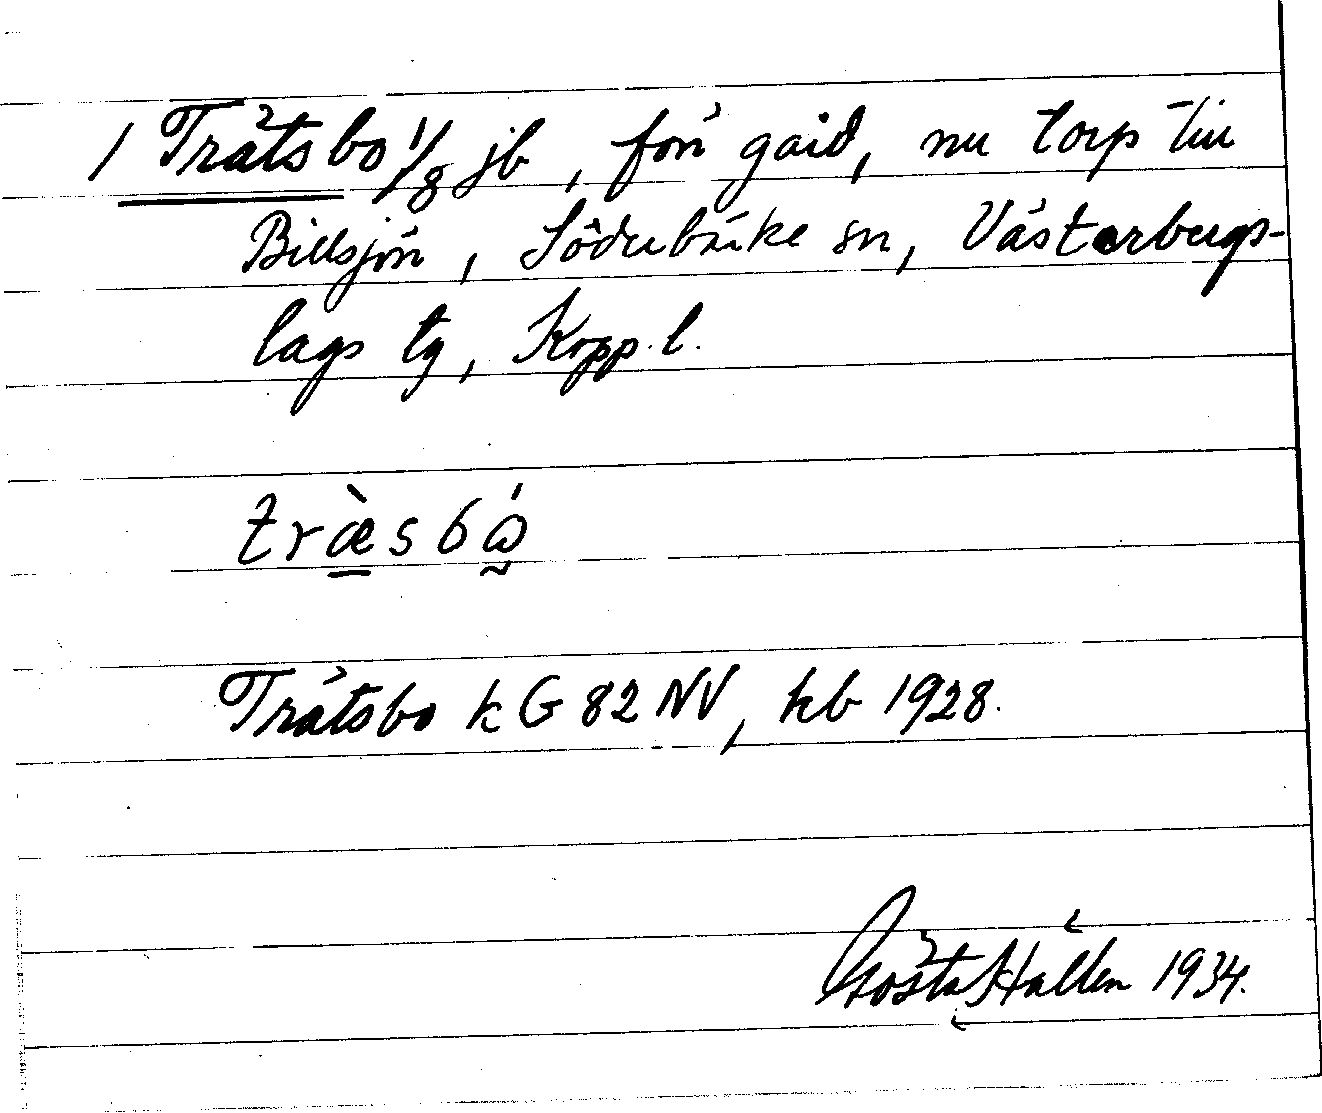 1 Trätsbo 1/8 jb, förr gård, nu torp till
Billsjön, Söderbärke sn, Västerbergs-
lags tg, Kopp. l.
træ̀sbώ
Trätsbo k G 82 NV, kb 1928.
Gösta Hallen 1934.